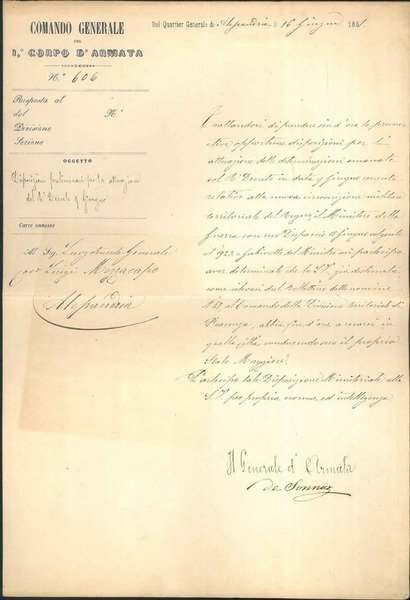 COMANDO GENERALE
DEL
3.° CORPO D'ARMATA
N.° 606
Risposta al
del N.°
Divisione
Sezione
OGGETTO
Disposizioni preliminari per la attuazione
del R.° Decreto 9 Giugno
Carte annesse
Al Sig. Luogotenente Generale
cav. Luigi Mezzacapo
Alessandria
Dal Quartier Generale di Alessandria il 16 Giugno 1861.
Trattandosi di prendere sin d'ora le preven-
tive opportune disposizioni per l'
attuazione delle determinazioni emanate
col R. Decreto in data 9 Giugno corrente
relativo alla nuova circoscrizione militare
territoriale del Regno, il Ministero della
Guerra con suo Dispaccio 15 Giugno
N.° 1923 Gabinetto del Ministro mi partecipa
aver determinato che la S.V. già destinata
come rilevasi dal Bollettino delle nomine
N.° 27 al Comando della Divisione territoriale di
Piacenza, abbia fin d'ora a recarsi in
quella città, conducendo seco il proprio
Stato Maggiore.
Partecipo tale Disposizione Ministeriale alla
S.V. per propria norma ed intelligenza.
Il Generale d'Armata
de Sonnaz